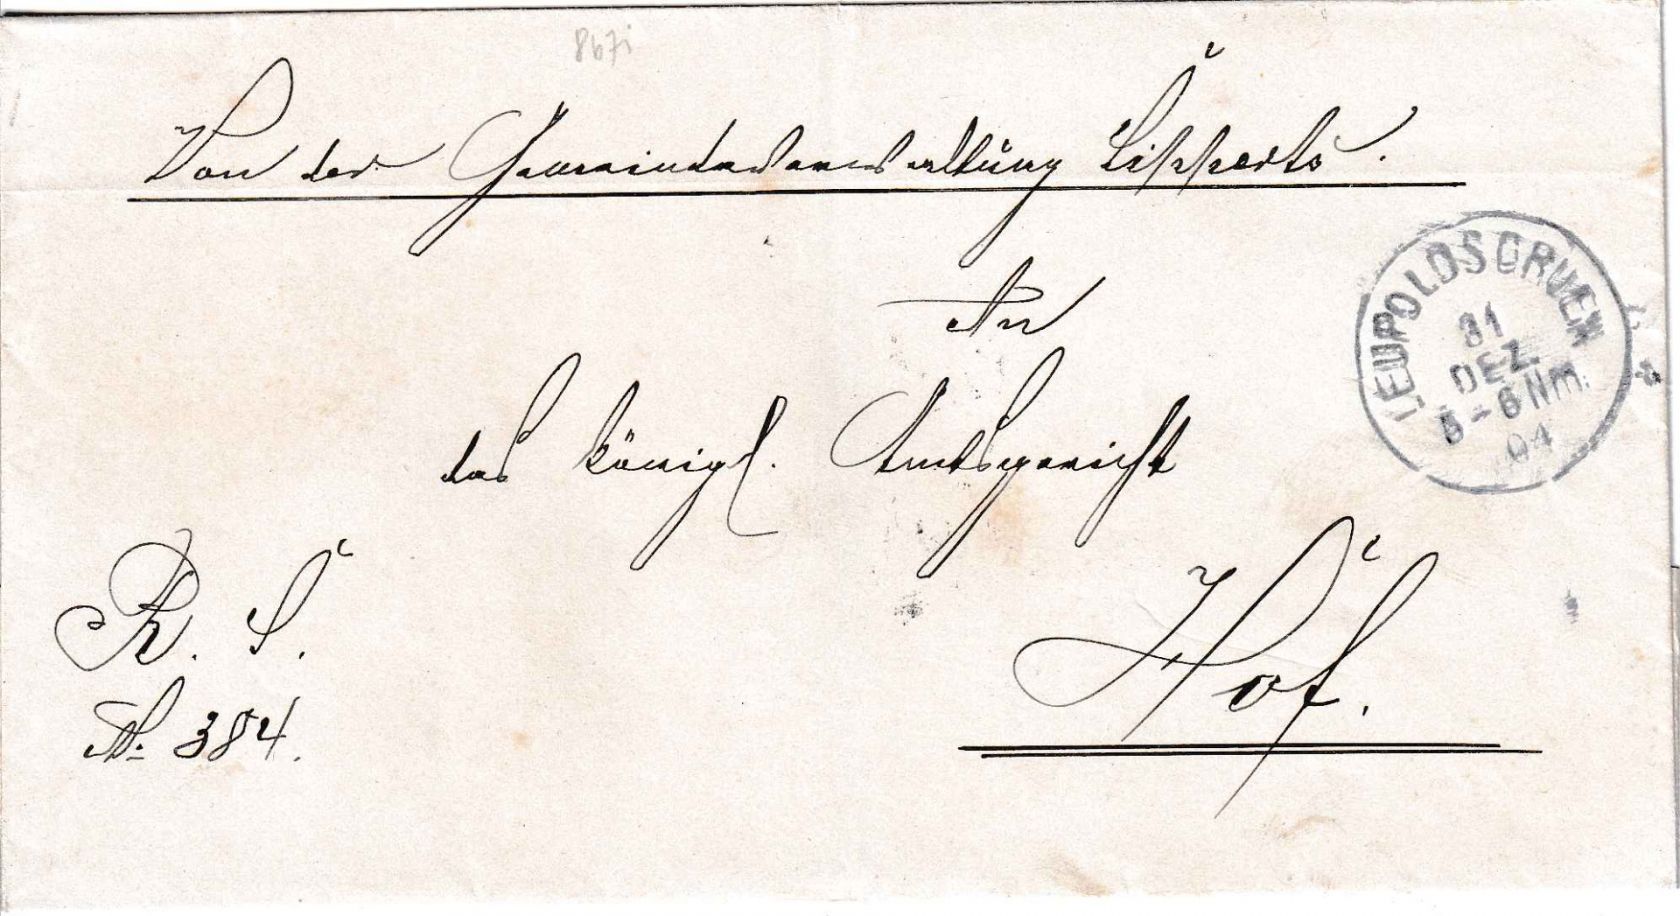 867i
Von der Gemeindeverwaltung Lipperts.
An
das königl. Amtsgericht
Hof.
R. S.
No. 384.
LEUPOLDSGRUEN
31
DEZ.
5-6 Nm.
04